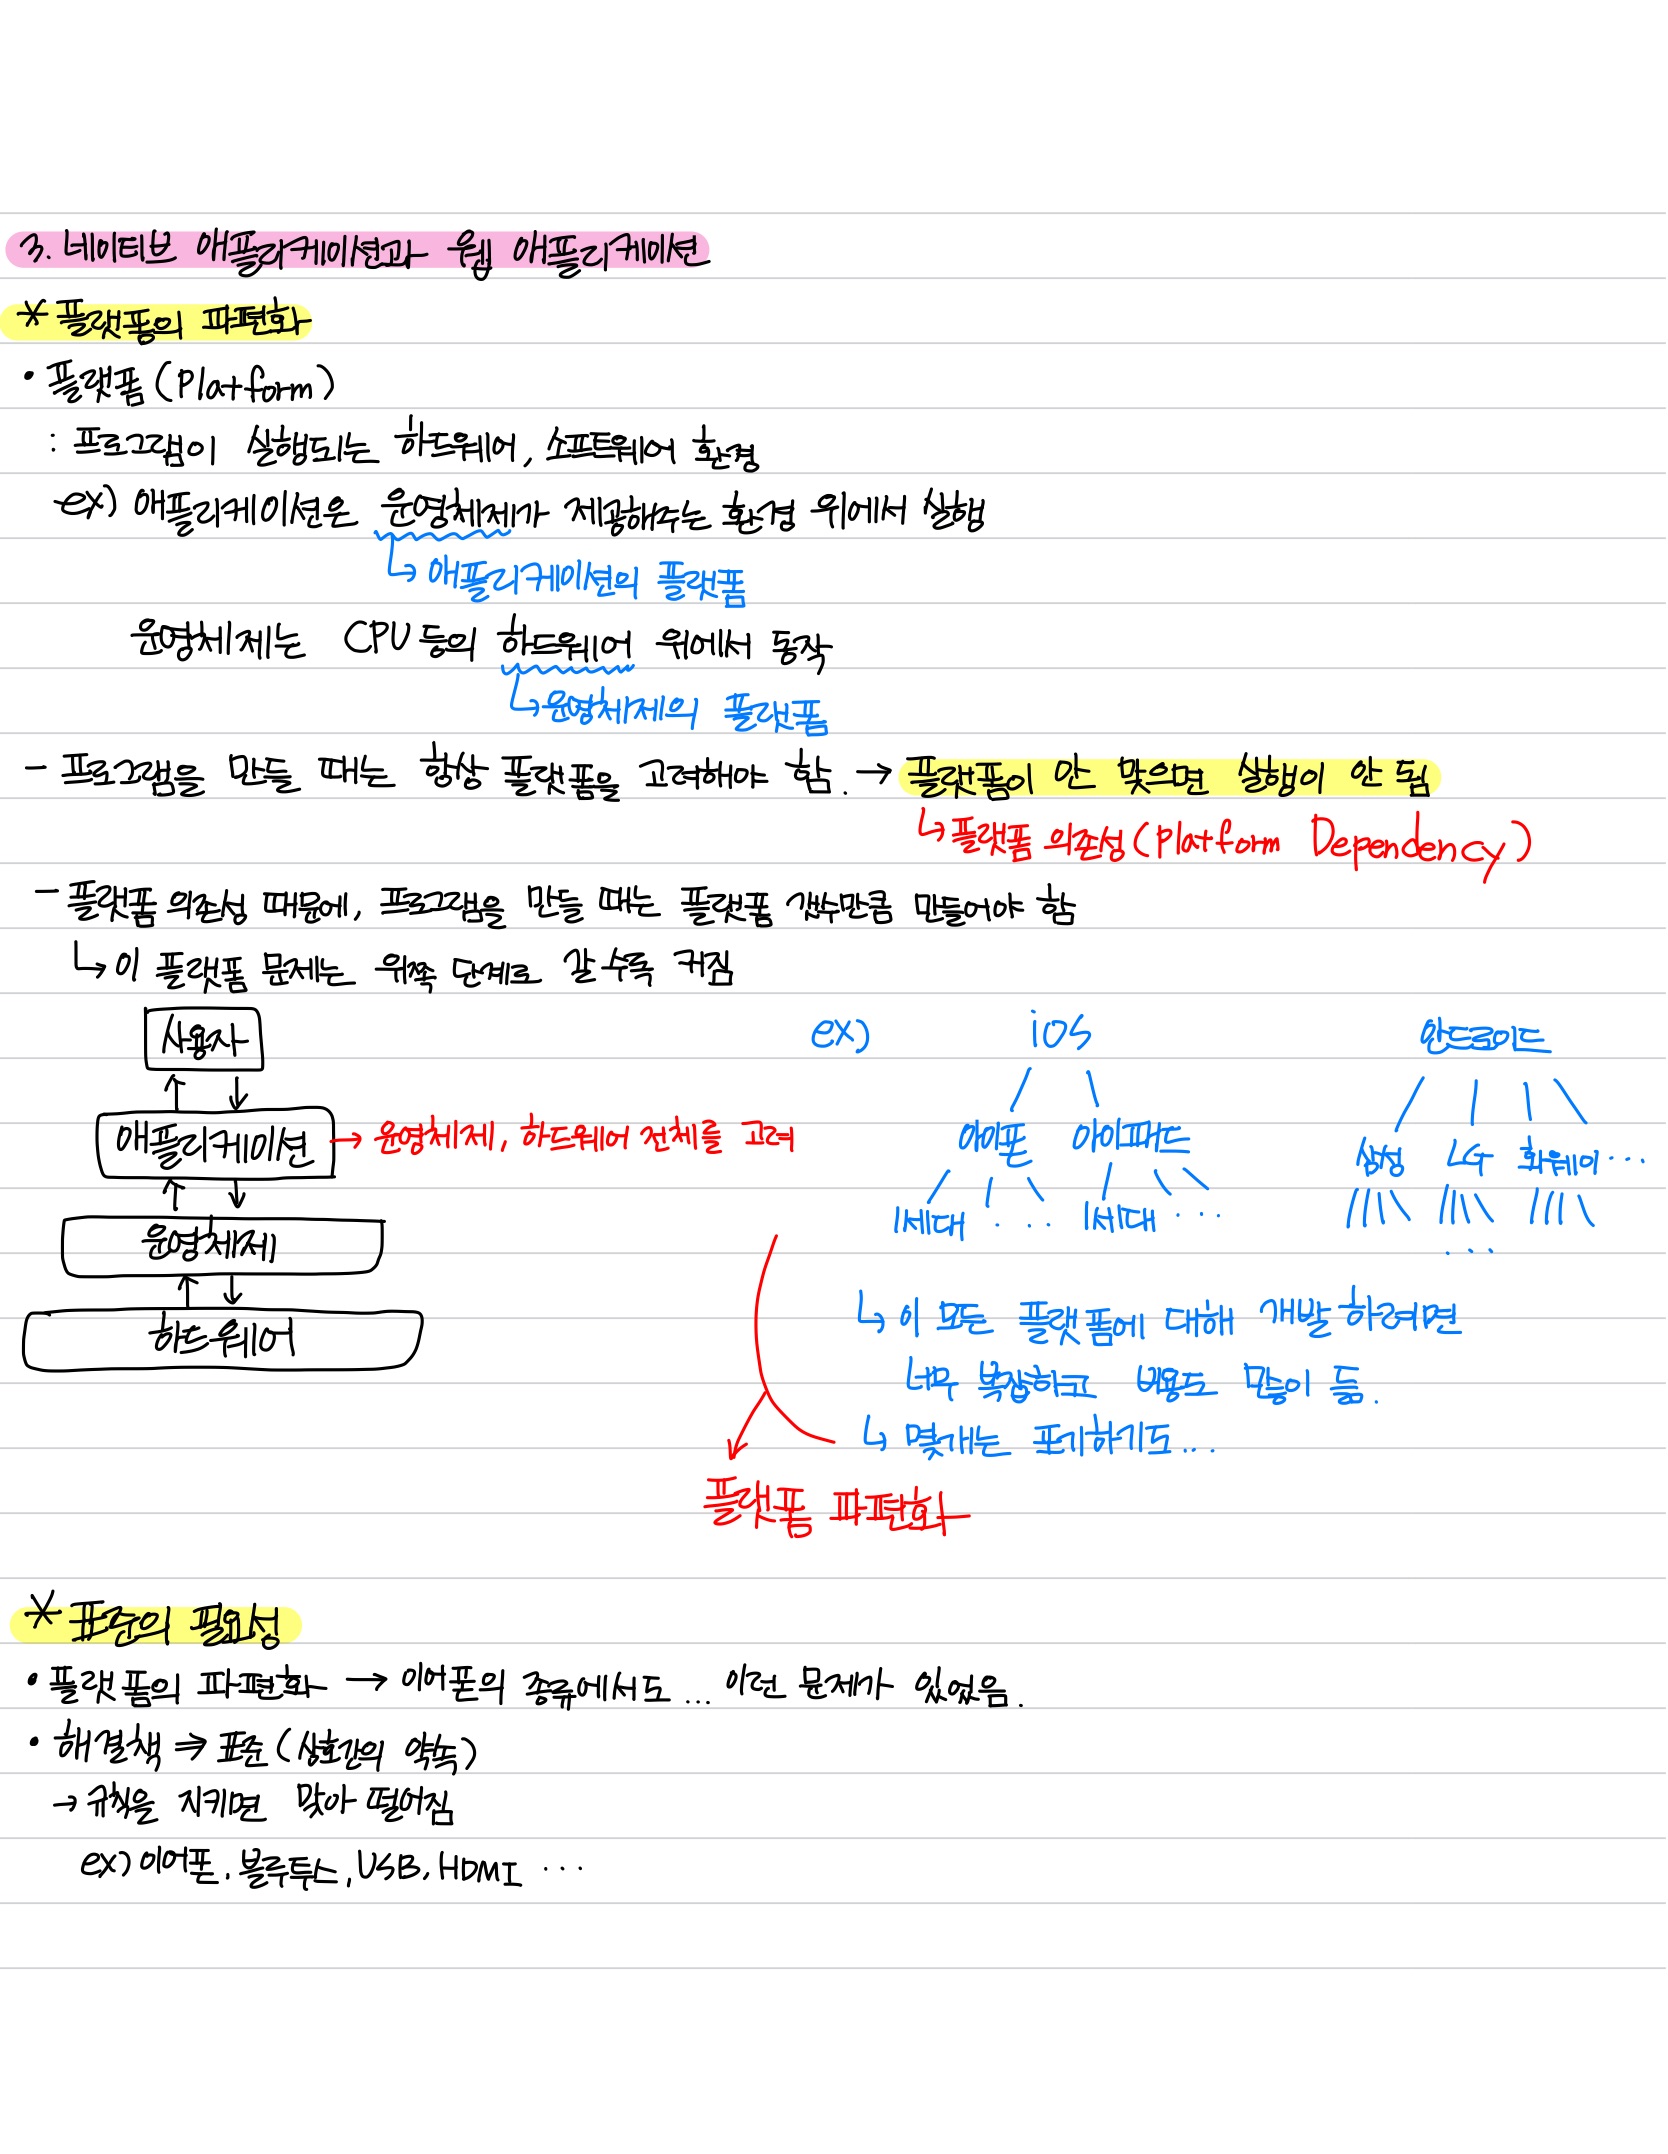 3. 네이티브 애플리케이션과 웹 애플리케이션
* 플랫폼의 파편화
• 플랫폼 (Platform)
: 프로그램이 실행되는 하드웨어, 소프트웨어 환경
ex) 애플리케이션은 운영체제가 제공해주는 환경 위에서 실행
↳ 애플리케이션의 플랫폼
운영체제는 CPU 등의 하드웨어 위에서 동작
↳ 운영체제의 플랫폼
- 프로그램을 만들 때는 항상 플랫폼을 고려해야 함. → 플랫폼이 안 맞으면 실행이 안 됨
↳ 플랫폼 의존성 (Platform Dependency)
- 플랫폼 의존성 때문에, 프로그램을 만들 때는 플랫폼 갯수만큼 만들어야 함
↳ 이 플랫폼 문제는 위쪽 단계로 갈 수록 커짐
사용자
애플리케이션 → 운영체제, 하드웨어 전체를 고려
운영체제
하드웨어
ex) iOS 안드로이드
아이폰 아이패드 삼성 LG 화웨이 ...
1세대 ... 1세대 ...
...
↳ 이 모든 플랫폼에 대해 개발 하려면
너무 복잡하고 비용도 많이 듦.
↳ 몇개는 포기하기도...
플랫폼 파편화
* 표준의 필요성
• 플랫폼의 파편화 → 이어폰의 종류에서도 ... 이런 문제가 있었음.
• 해결책 ⇒ 표준 (상호간의 약속)
→ 규칙을 지키면 맞아 떨어짐
ex) 이어폰, 블루투스, USB, HDMI ...